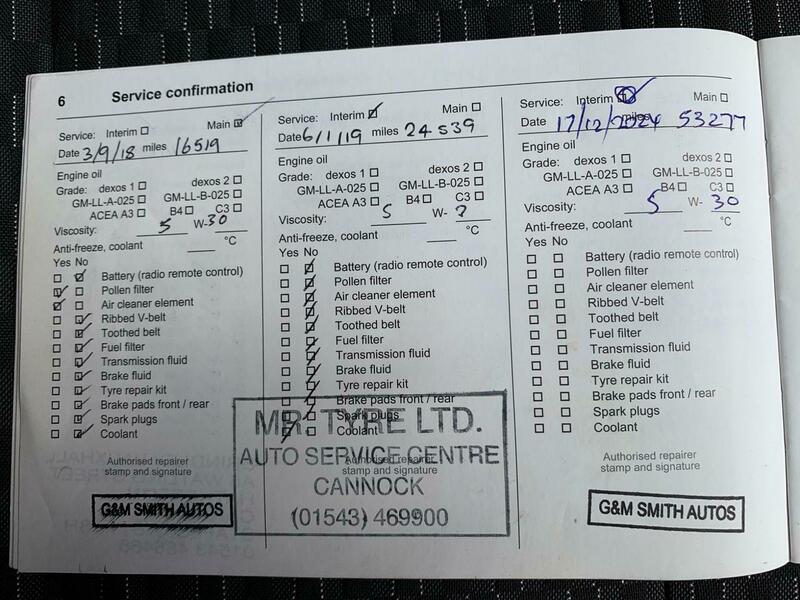 6 Service confirmation
Service: Interim Main
Date 3/9/18 miles 16519
Engine oil
Grade: dexos 1 dexos 2
GM-LL-A-025 GM-LL-B-025
ACEA A3 B4 C3
Viscosity: 5 W-30
Anti-freeze, coolant °C
Yes No
Battery (radio remote control)
Pollen filter
Air cleaner element
Ribbed V-belt
Toothed belt
Fuel filter
Transmission fluid
Brake fluid
Tyre repair kit
Brake pads front / rear
Spark plugs
Coolant
Authorised repairer
stamp and signature
G&M SMITH AUTOS
Service: Interim Main
Date 6/1/19 miles 24539
Engine oil
Grade: dexos 1 dexos 2
GM-LL-A-025 GM-LL-B-025
ACEA A3 B4 C3
Viscosity: 5 W- ?
Anti-freeze, coolant °C
Yes No
Battery (radio remote control)
Pollen filter
Air cleaner element
Ribbed V-belt
Toothed belt
Fuel filter
Transmission fluid
Brake fluid
Tyre repair kit
Brake pads front / rear
Spark plugs
Coolant
Authorised repairer
stamp and signature
MR. TYRE LTD.
AUTO SERVICE CENTRE
CANNOCK
(01543) 469900
Service: Interim Main
Date 17/12/2024 miles 53277
Engine oil
Grade: dexos 1 dexos 2
GM-LL-A-025 GM-LL-B-025
ACEA A3 B4 C3
Viscosity: 5 W- 30
Anti-freeze, coolant °C
Yes No
Battery (radio remote control)
Pollen filter
Air cleaner element
Ribbed V-belt
Toothed belt
Fuel filter
Transmission fluid
Brake fluid
Tyre repair kit
Brake pads front / rear
Spark plugs
Coolant
Authorised repairer
stamp and signature
G&M SMITH AUTOS